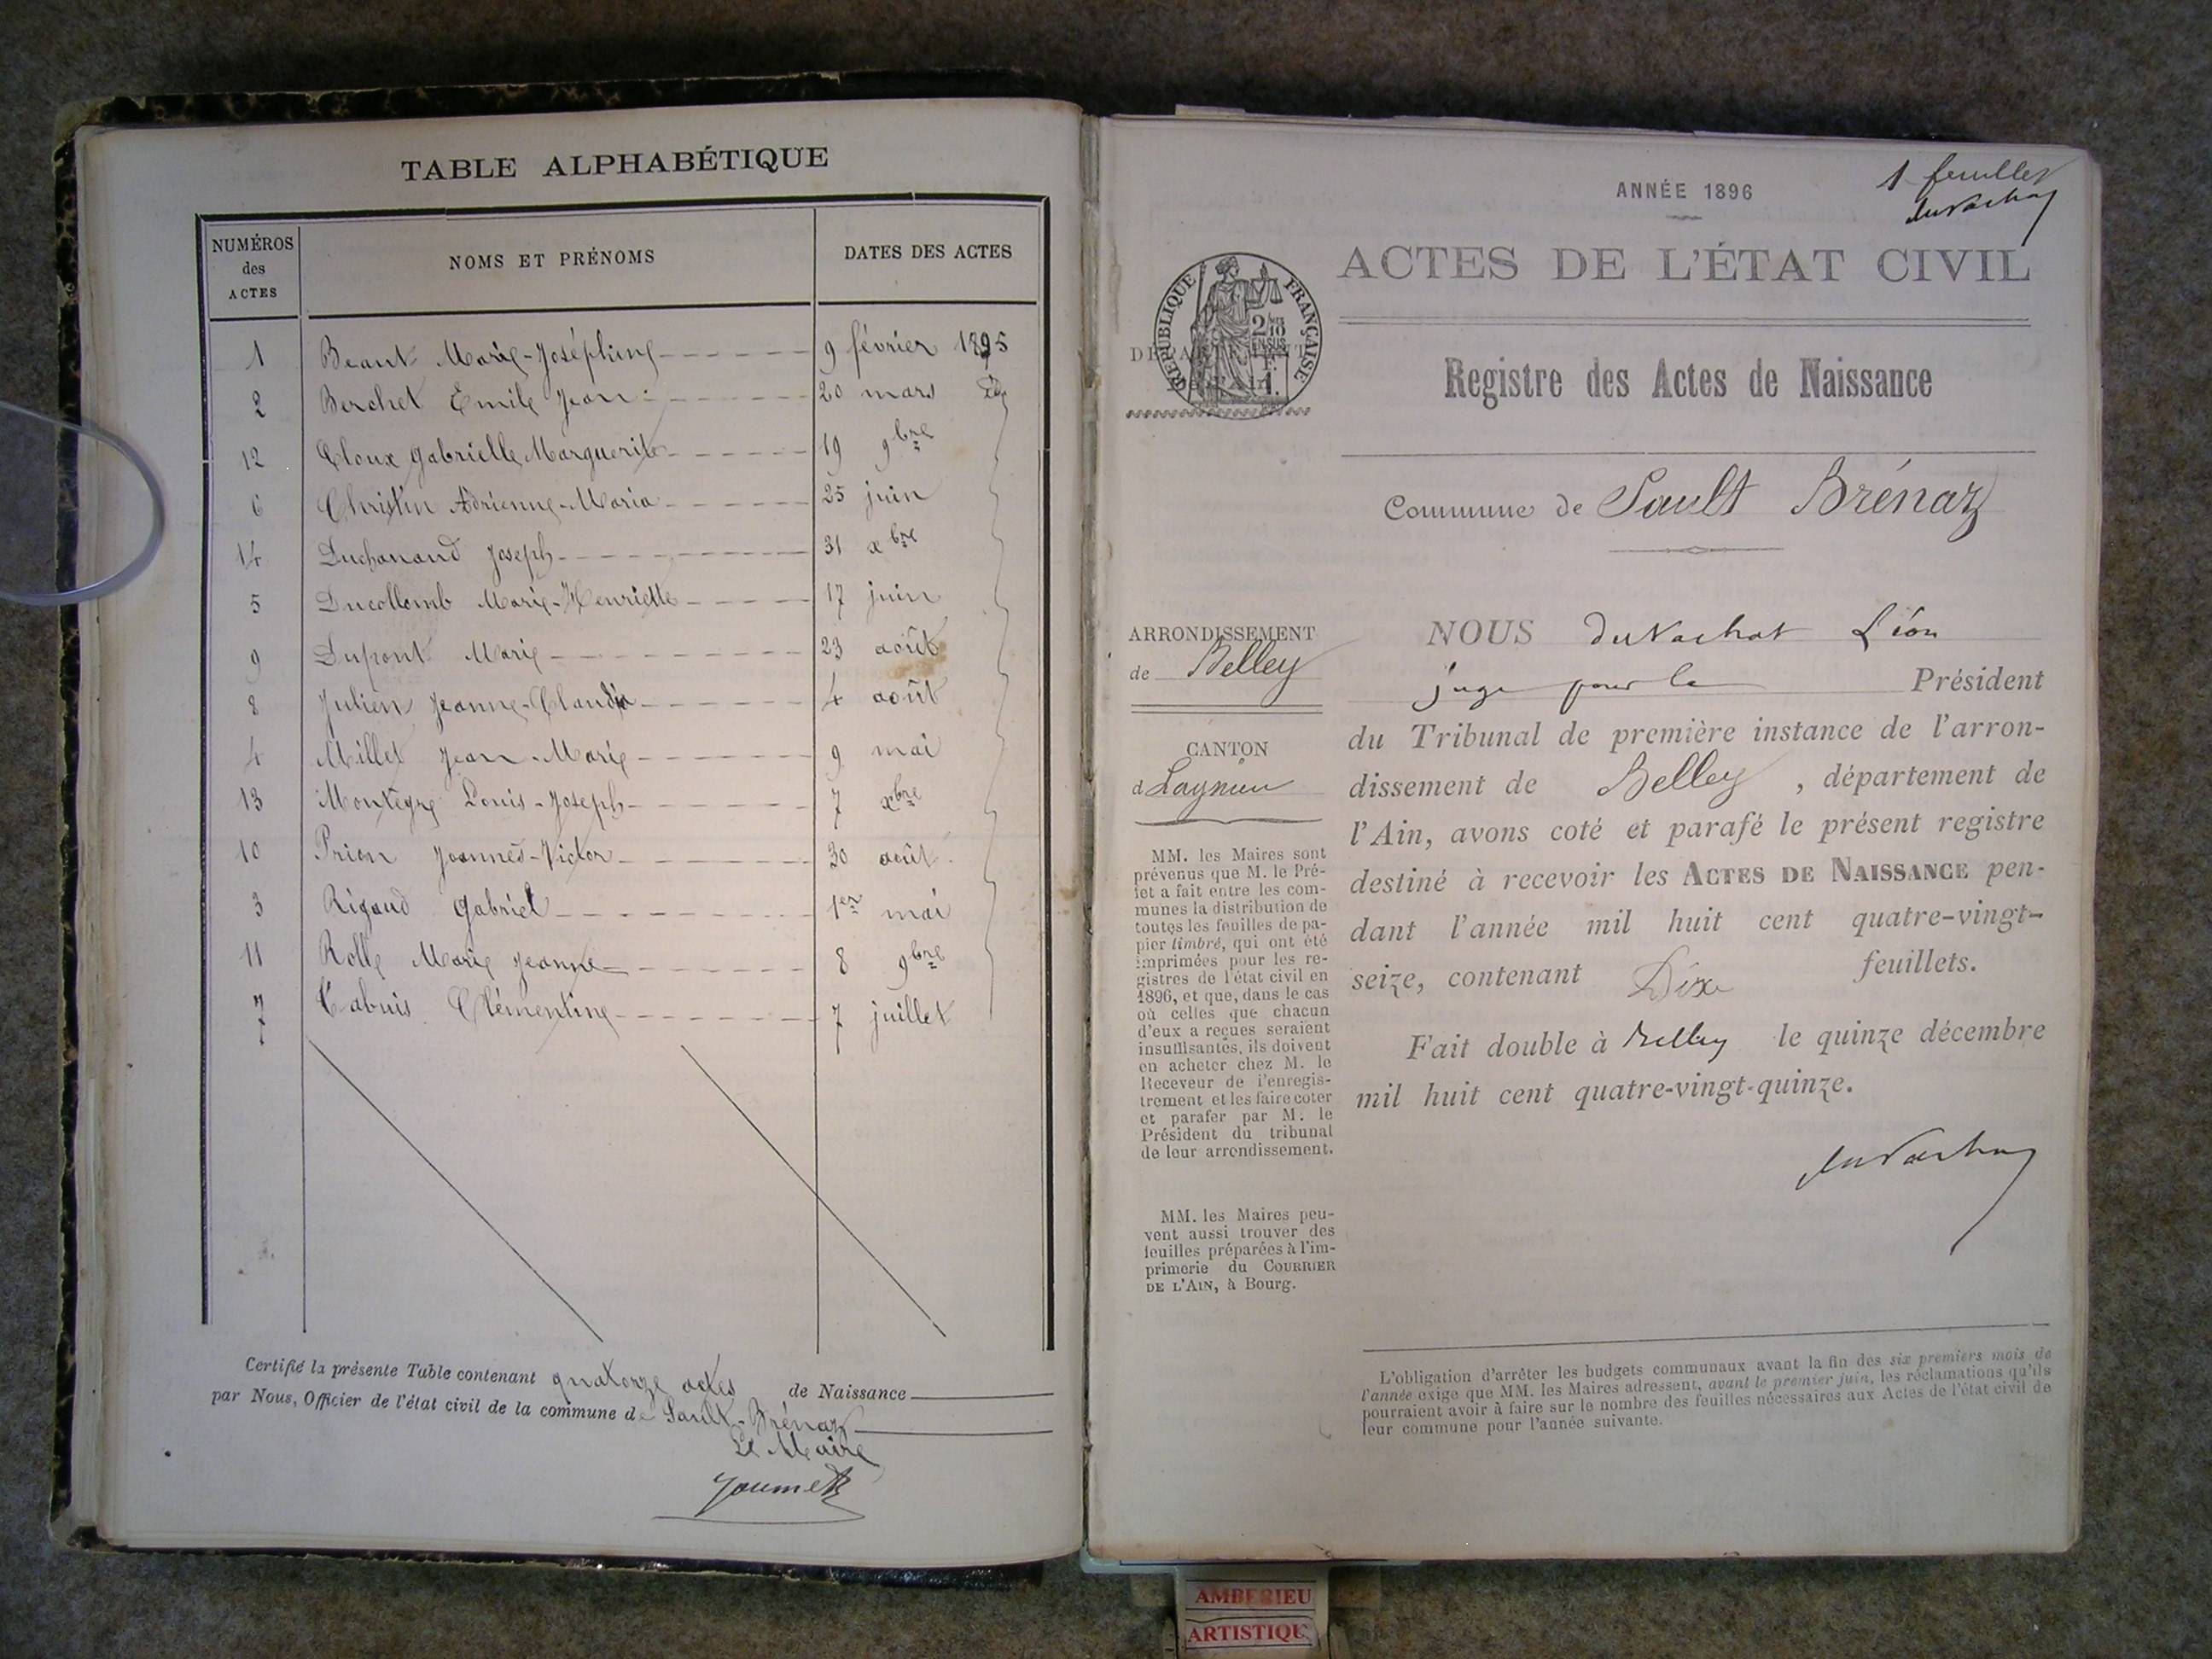 TABLE ALPHABÉTIQUE
NUMÉROS des ACTES
NOMS ET PRÉNOMS
DATES DES ACTES
1 Beant Marie-Joséphine 9 février 1895
2 Berchet Emile Jean 20 mars id
12 Cloux Gabrielle Marguerite 19 9bre
6 Christin Adrienne-Maria 25 juin
14 Duchanaud Joseph 31 xbre
5 Ducollomb Marie-Henriette 17 juin
9 Dupont Marie 23 août
8 Julien Jeanne-Claudia 4 août
4 Millet Jean-Marie 9 mai
13 Montègre Louis-Joseph 7 xbre
10 Prion Joannès-Victor 30 août
3 Rigaud Gabriel 1er mai
11 Rolle Marie Jeanne 8 9bre
7 Cabuis Clémentine 7 juillet
Certifié la présente Table contenant quatorze actes de Naissance
par Nous, Officier de l'état civil de la commune de Sault-Brénaz
Le Maire
1 feuillet
ANNÉE 1896
ACTES DE L'ÉTAT CIVIL
RÉPUBLIQUE FRANÇAISE
DÉPARTEMENT
DE L'AIN
Registre des Actes de Naissance
Commune de Sault Brénaz
ARRONDISSEMENT
de Belley
CANTON
d Lagnieu
MM. les Maires sont
prévenus que M. le Pré-
fet a fait entre les com-
munes la distribution de
toutes les feuilles de pa-
pier timbré, qui ont été
imprimées pour les re-
gistres de l'état civil en
1896, et que, dans le cas
où celles que chacun
d'eux a reçues seraient
insuffisantes, ils doivent
en acheter chez M. le
Receveur de l'enregis-
trement et les faire coter
et parafer par M. le
Président du tribunal
de leur arrondissement.
MM. les Maires peu-
vent aussi trouver des
feuilles préparées à l'im-
primerie du COURRIER
DE L'AIN, à Bourg.
NOUS du Vachat Léon
juge pour le Président
du Tribunal de première instance de l'arron-
dissement de Belley, département de
l'Ain, avons coté et parafé le présent registre
destiné à recevoir les ACTES DE NAISSANCE pen-
dant l'année mil huit cent quatre-vingt-
seize, contenant Dix feuillets.
Fait double à Belley le quinze décembre
mil huit cent quatre-vingt-quinze.
du Vachat
L'obligation d'arrêter les budgets communaux avant la fin des six premiers mois de
l'année exige que MM. les Maires adressent, avant le premier juin, les réclamations qu'ils
pourraient avoir à faire sur le nombre des feuilles nécessaires aux Actes de l'état civil de
leur commune pour l'année suivante.
AMBERIEU
ARTISTIQU